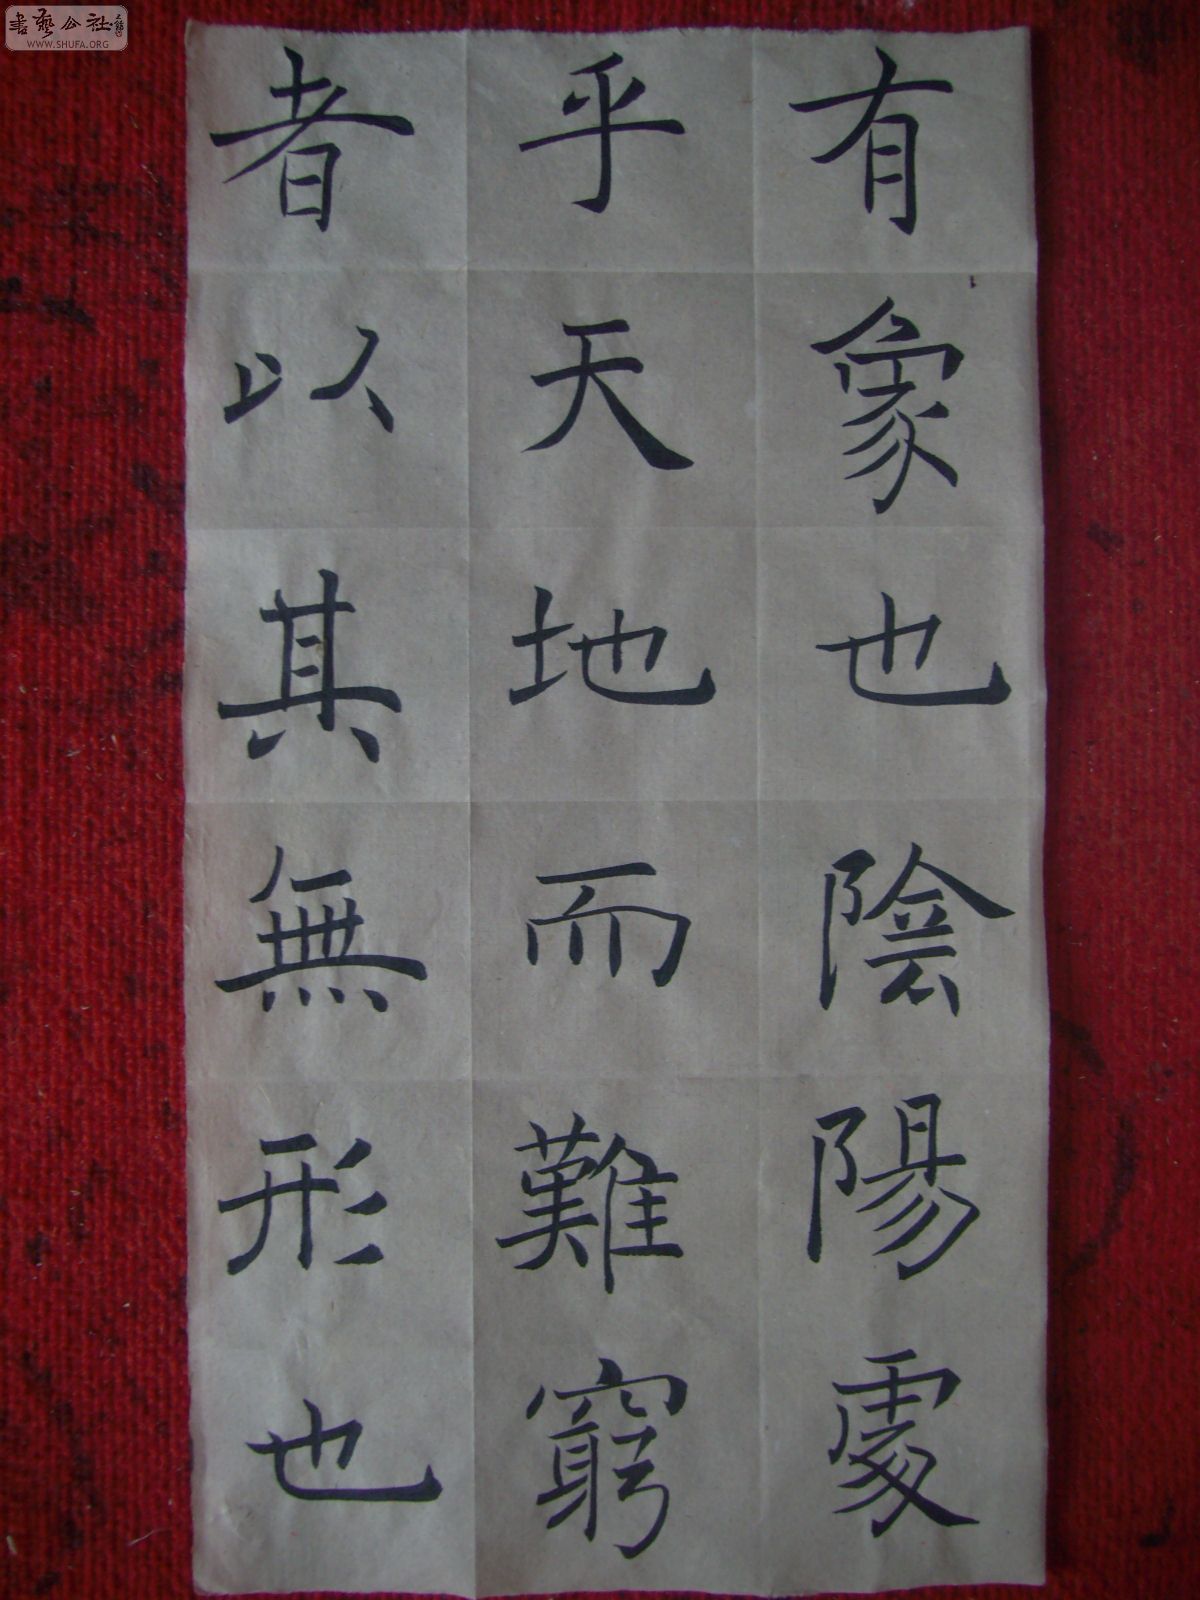 有象也陰陽處
乎天地而難窮
者以其無形也
書藝公社
WWW.SHUFA.ORG